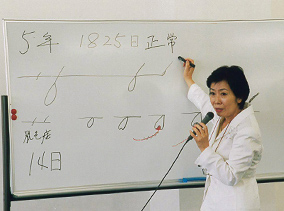 5年 1825日 正常
脱毛症
14日